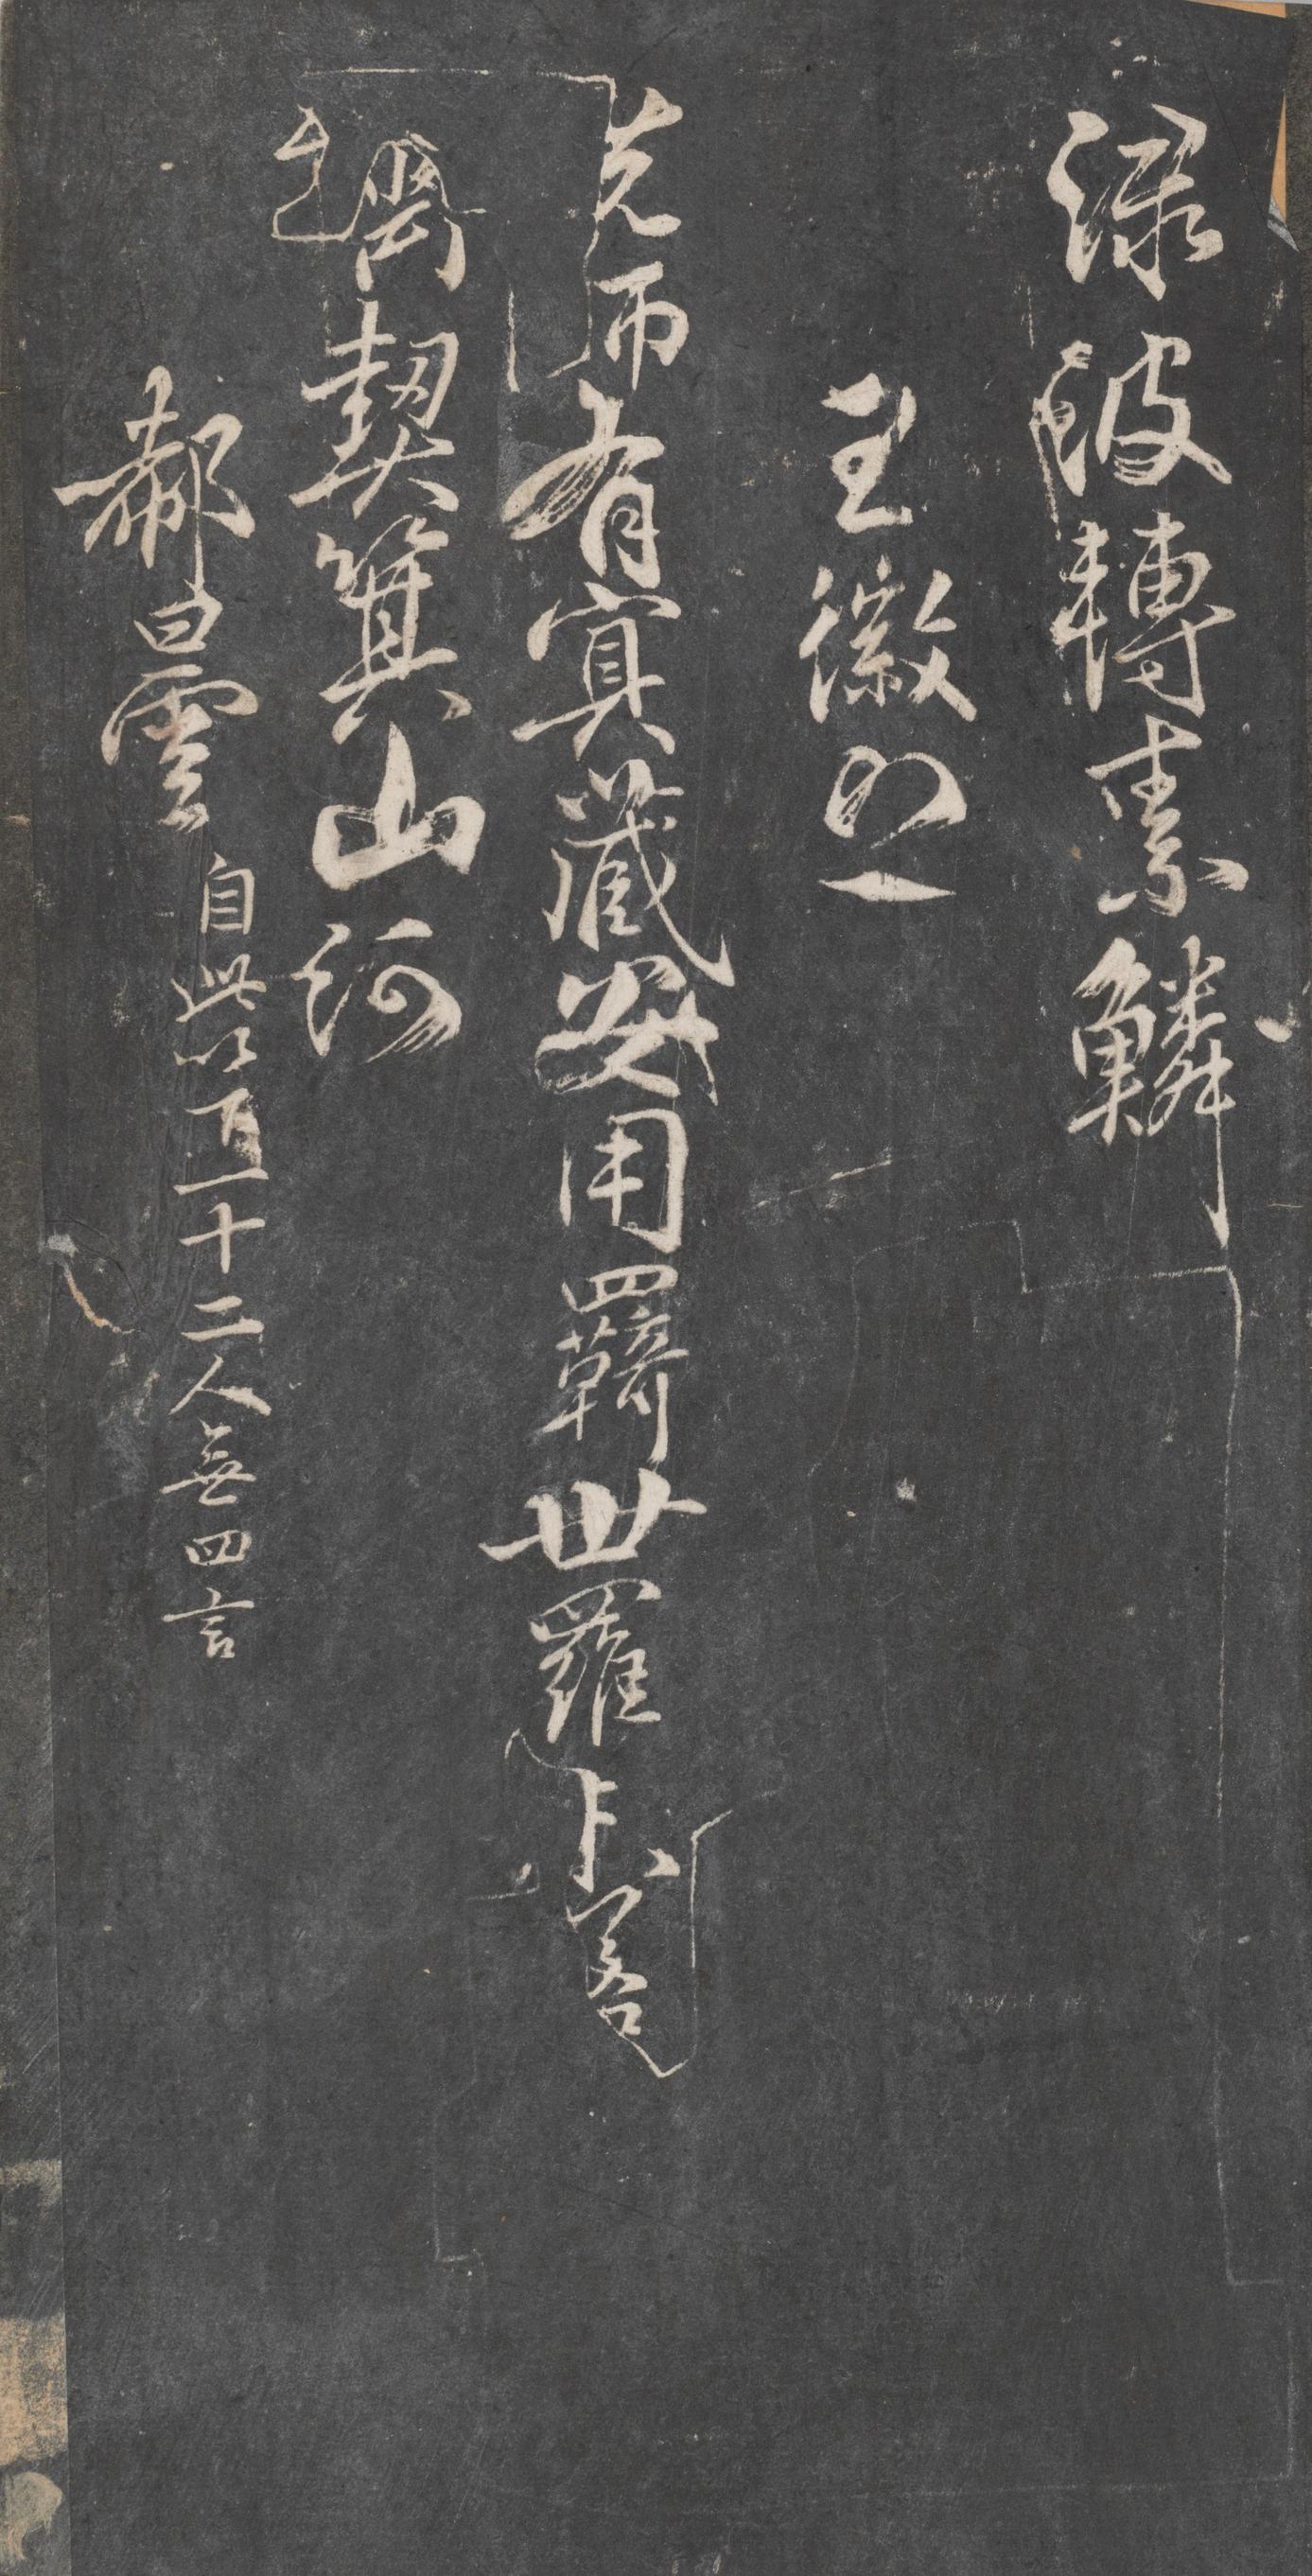 渌波轉素鱗
王徽之
先師有冥藏安用羇世羅未若
齊契箕山河
郗曇 自此以一十二人無四言